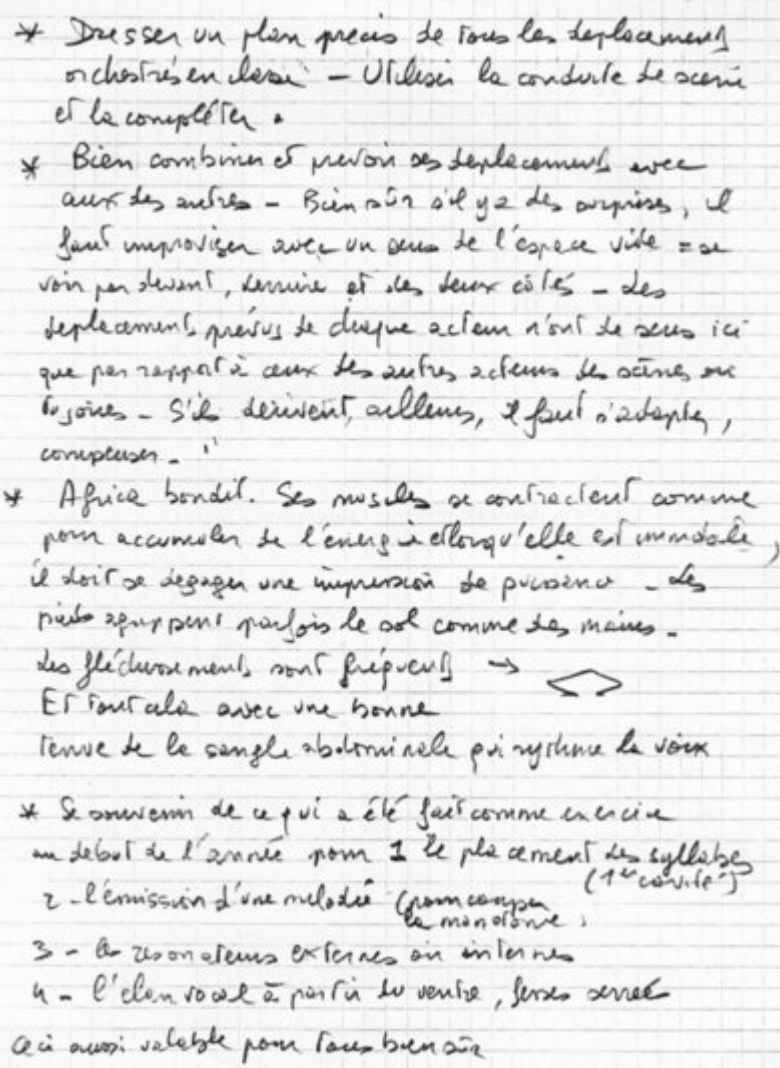 * Dresser un plan precis de tous les deplacements
orchestrés en classe - Utiliser la conduite de scène
et la compléter.
* Bien combiner et prevoir ses deplacements avec
ceux des autres - Bien sûr s'il y a des surprises, il
faut improviser avec un sens de l'espace vide = se
voir par devant, derrière et des deux côtés - Les
deplacements prévus de chaque acteur n'ont de sens ici
que par rapport à ceux des autres acteurs des scènes ou
- S'ils dérivent, ailleurs, il faut s'adapter,
compenser - "
* Africa bondit. Ses muscles se contractent comme
pour accumuler de l'énergie et lorsqu'elle est immobile,
il doit se dégager une impression de puissance - Les
pieds agrippent parfois le sol comme des mains -
Les fléchissements sont fréquents →
Et tout cela avec une bonne
tenue de la sangle abdominale qui rythme la voix
* Se souvenir de ce qui a été fait comme exercice
au début de l'année pour 1 le placement des syllabes
(1ère cavité)
2 - l'émission d'une mélodie (pour couper
la monotonie)
3 - les résonateurs externes ou internes
4 - l'élan vocal à partir du ventre, fesses serrées
Ceci aussi valable pour tous bien sûr